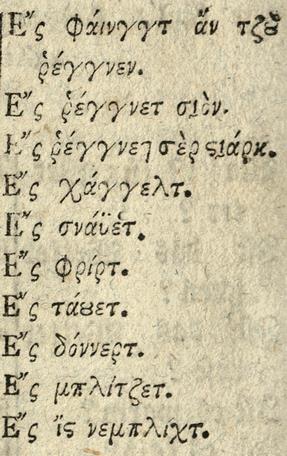 Ἔς φάινγγτ ἄν τζȣ̃
ῥέγγνεν.
Ἔς ῥέγγνετ σιὸν.
Ἔς ῥέγγνεη σὲρ ςιάρκ.
Ἔς χάγγελτ.
Ἔς σνάϋἐτ.
Ἔς φρίρτ.
Ἔς τάȣετ.
Ἔς δόννερτ.
Ἔς μπλίτζετ.
Ἔς ἴς νεμπλίχτ.